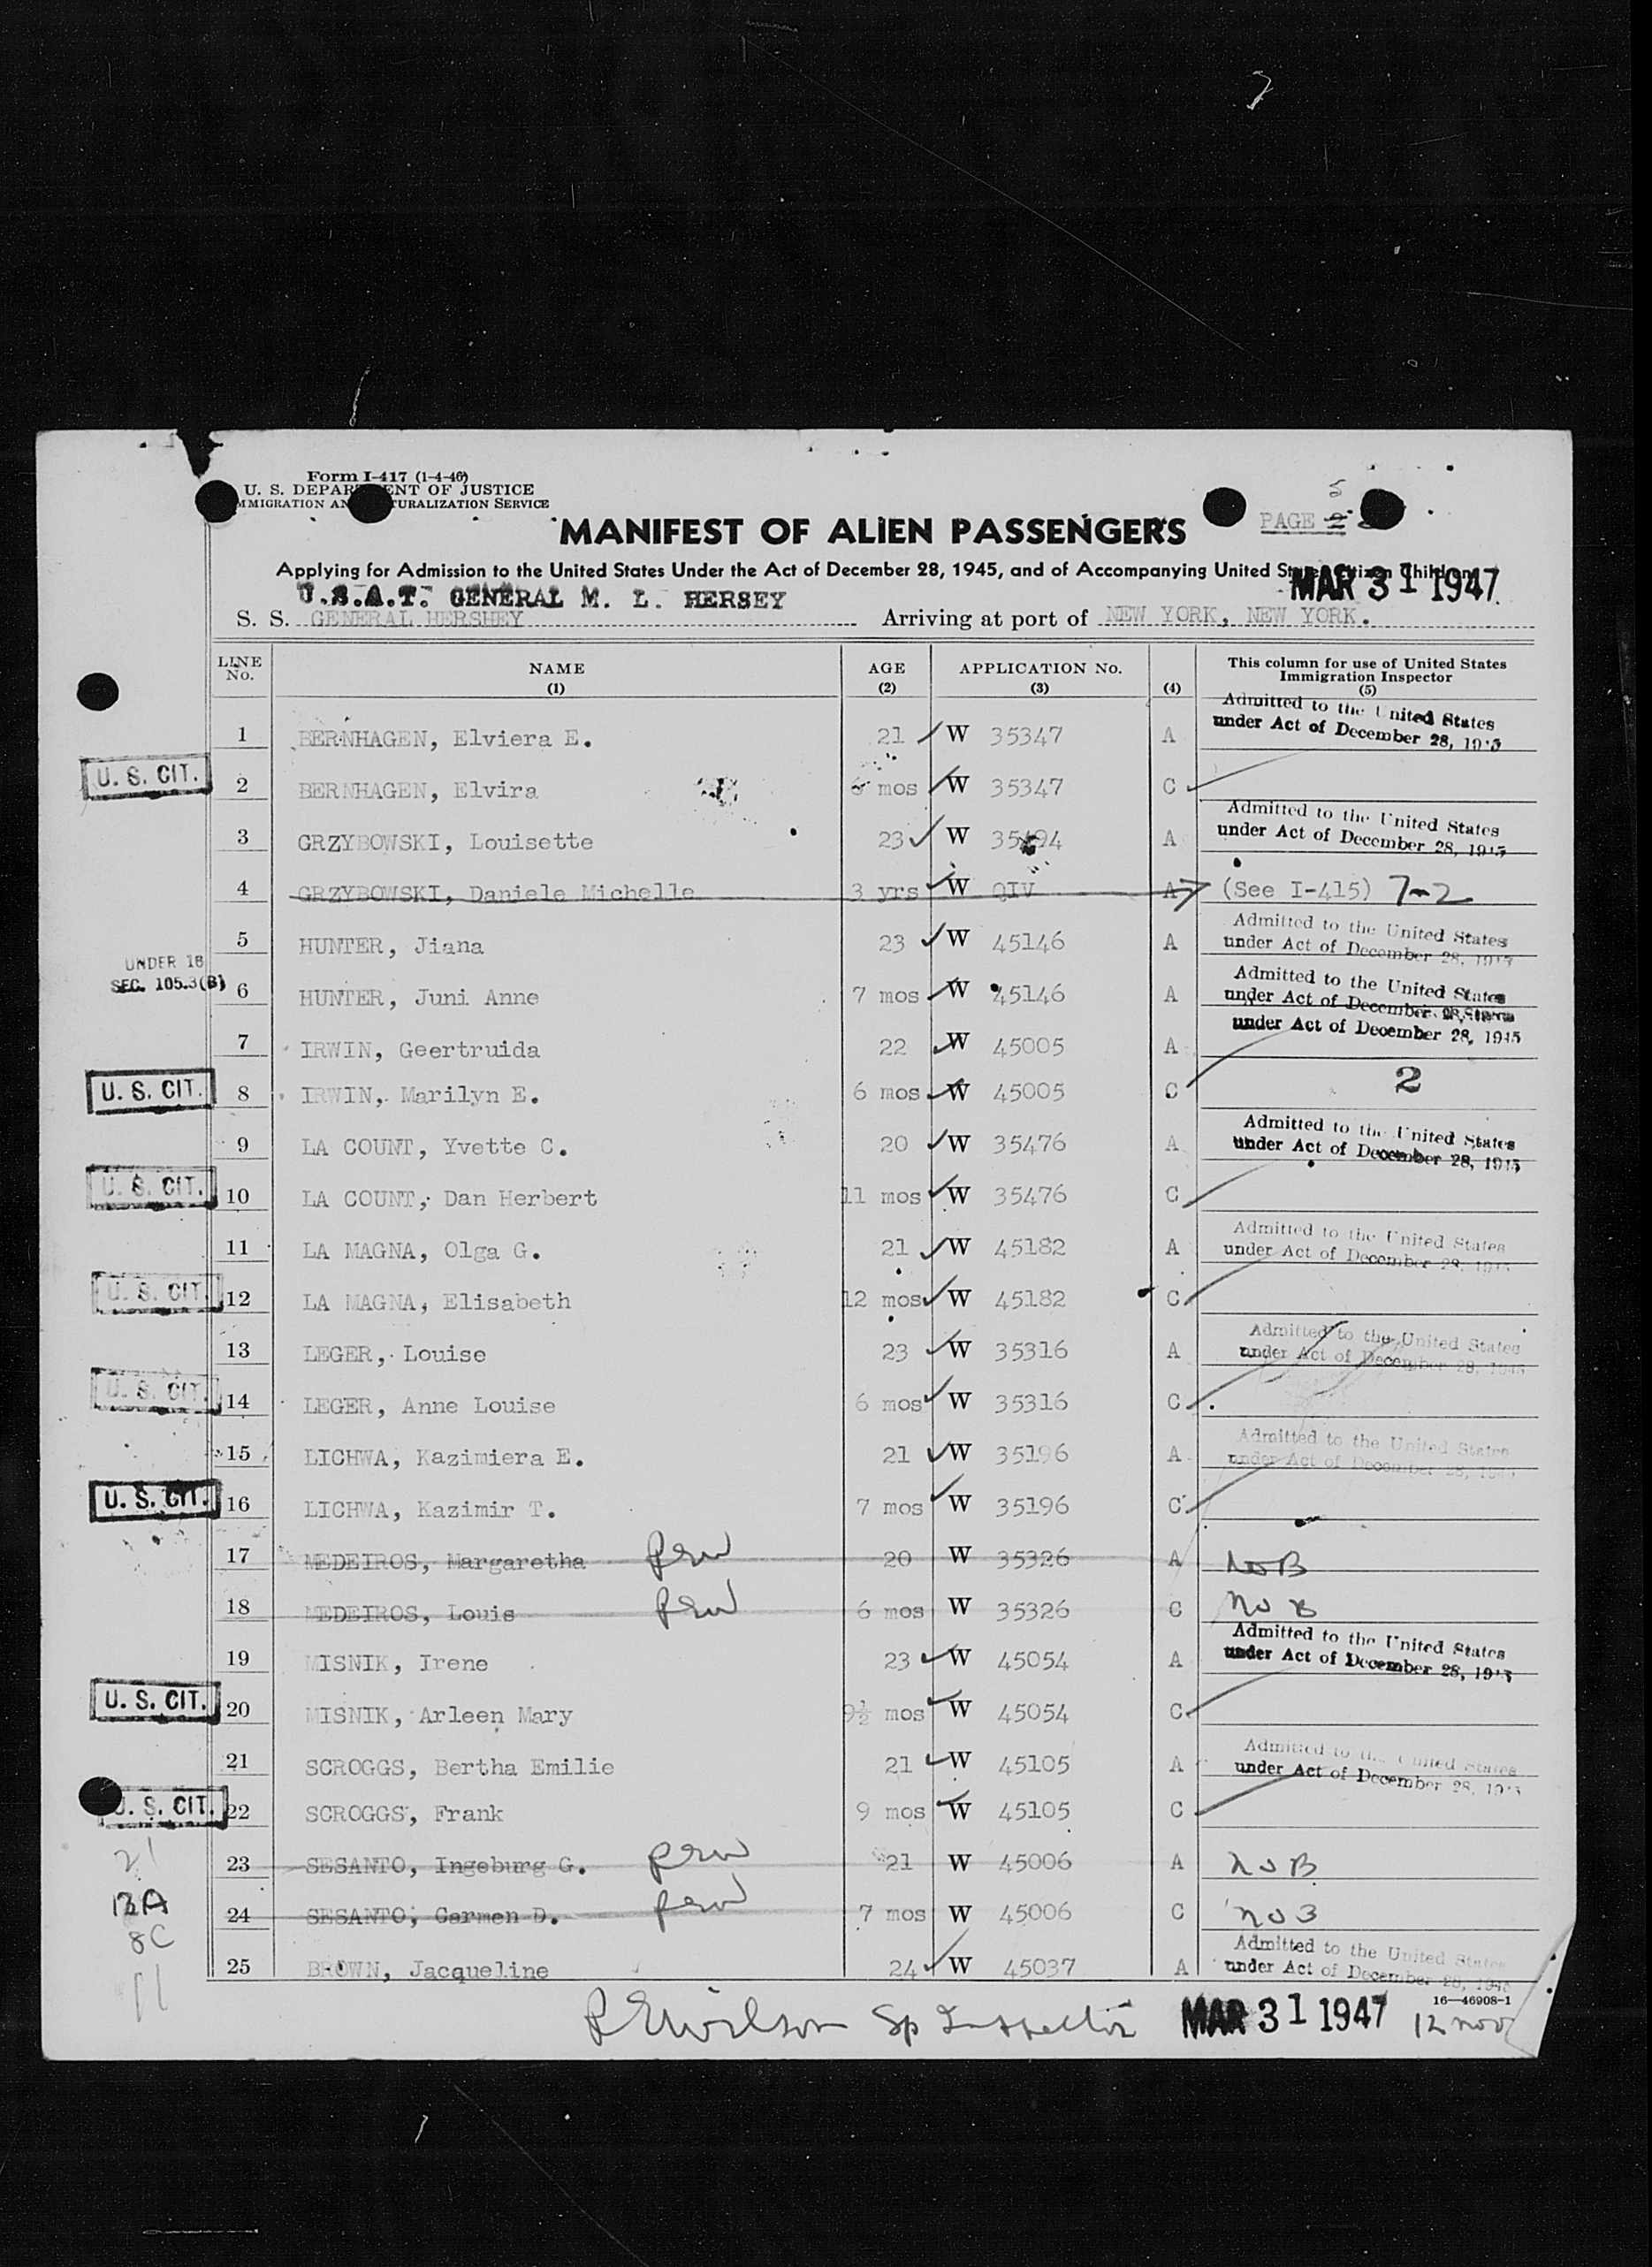 Form I-417 (1-4-46)
U. S. DEPAR ENT OF JUSTICE
MMIGRATION AN TURALIZATION SERVICE
MANIFEST OF ALIEN PASSENGERS
PAGE
Applying for Admission to the United States Under the Act of December 28, 1945, and of Accompanying United States Citizen Children
MAR 31 1947
U.S.A.T. GENERAL M. L. HERSEY
S. S. GENERAL HERSHEY Arriving at port of NEW YORK, NEW YORK.
LINE No. NAME (1) AGE (2) APPLICATION No. (3) (4) This column for use of United States Immigration Inspector (5)
1 BERNHAGEN, Elviera E. 21 W 35347 A Admitted to the United States under Act of December 28, 1945
U. S. CIT. 2 BERNHAGEN, Elvira 6 mos W 35347 C
3 GRZYBOWSKI, Louisette 23 W 35494 A Admitted to the United States under Act of December 28, 1945
4 GRZYBOWSKI, Daniele Michelle 3 yrs W QIV A (See I-415) 7-2
5 HUNTER, Jiana 23 W 45146 A Admitted to the United States under Act of December 28, 1945
UNDER 16 SEC. 105.3(B) 6 HUNTER, Juni Anne 7 mos W 45146 A Admitted to the United States under Act of December 28, 1945
7 IRWIN, Geertruida 22 W 45005 A under Act of December 28, 1945
U. S. CIT. 8 IRWIN, Marilyn E. 6 mos W 45005 C 2
9 LA COUNT, Yvette C. 20 W 35476 A Admitted to the United States under Act of December 28, 1945
U. S. CIT. 10 LA COUNT, Dan Herbert 11 mos W 35476 C
11 LA MAGNA, Olga G. 21 W 45182 A Admitted to the United States under Act of December 28, 1945
U. S. CIT. 12 LA MAGNA, Elisabeth 12 mos W 45182 C
13 LEGER, Louise 23 W 35316 A Admitted to the United States under Act of December 28, 1945
U. S. CIT. 14 LEGER, Anne Louise 6 mos W 35316 C
15 LICHWA, Kazimiera E. 21 W 35196 A Admitted to the United States under Act of December 28, 1945
U. S. CIT. 16 LICHWA, Kazimir T. 7 mos W 35196 C
17 MEDEIROS, Margaretha PEW 20 W 35326 A NOB
18 MEDEIROS, Louis PEW 6 mos W 35326 C NOB
19 MISNIK, Irene 23 W 45054 A Admitted to the United States under Act of December 28, 1945
U. S. CIT. 20 MISNIK, Arleen Mary 9½ mos W 45054 C
21 SCROGGS, Bertha Emilie 21 W 45105 A Admitted to the United States under Act of December 28, 1945
U. S. CIT. 22 SCROGGS, Frank 9 mos W 45105 C
21
23 SESANTO, Ingeburg G. PEW 21 W 45006 A NOB
12A
24 SESANTO, Carmen D. PEW 7 mos W 45006 C NOB
8C
25 BROWN, Jacqueline 24 W 45037 A Admitted to the United States under Act of December 28, 1945
11
16—46908-1
P E Wilson Sp Inspector MAR 31 1947 12